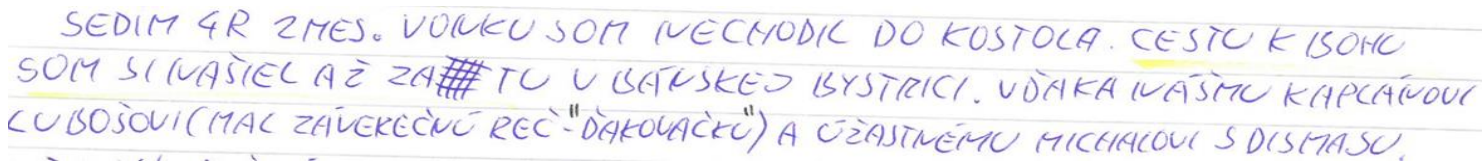 SEDIM 4R 2MES. VONKU SOM NECHODIL DO KOSTOLA. CESTU K BOHU
SOM SI NAŠIEL AŽ ZA TU V BÁNSKEJ BYSTRICI. VĎAKA NÁŠMU KAPLÁNOVI
LUBOŠOVI (MAL ZÁVEREČNÚ REČ-"ĎAKOVAČKU") A ÚŽASTNÉMU MICHALOVI S DISMASU.